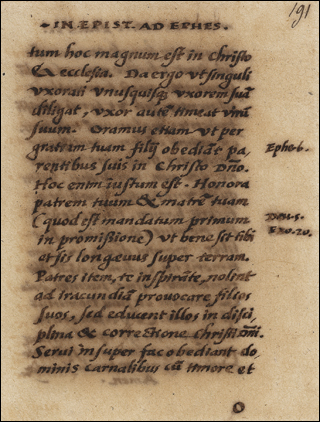 191
IN EPIST. AD EPHES.
tum hoc magnum est in Christo
& ecclesia. Da ergo vt singuli
vxorati vnusquisq; vxorem suā
diligat, vxor autē timeat virū
suum. Oramus etiam vt per
gratiam tuam filij obediāt pa,
rentibus suis in Christo Dño.
Hoc enim iustum est. Honora
patrem tuum & matrē tuam
(quod est mandatum primum
in promißione) vt bene sit tibi
et sis longæuus super terram.
Patres item, te inspirāte, nolint
ad iracundiā prouocare filios
suos, sed educent illos in disci,
plina & correctione Christi
Serui insuper fac obediant do,
minis carnalibus cū timore et
Ephe. 6.
Deu. 5.
Exo. 20.